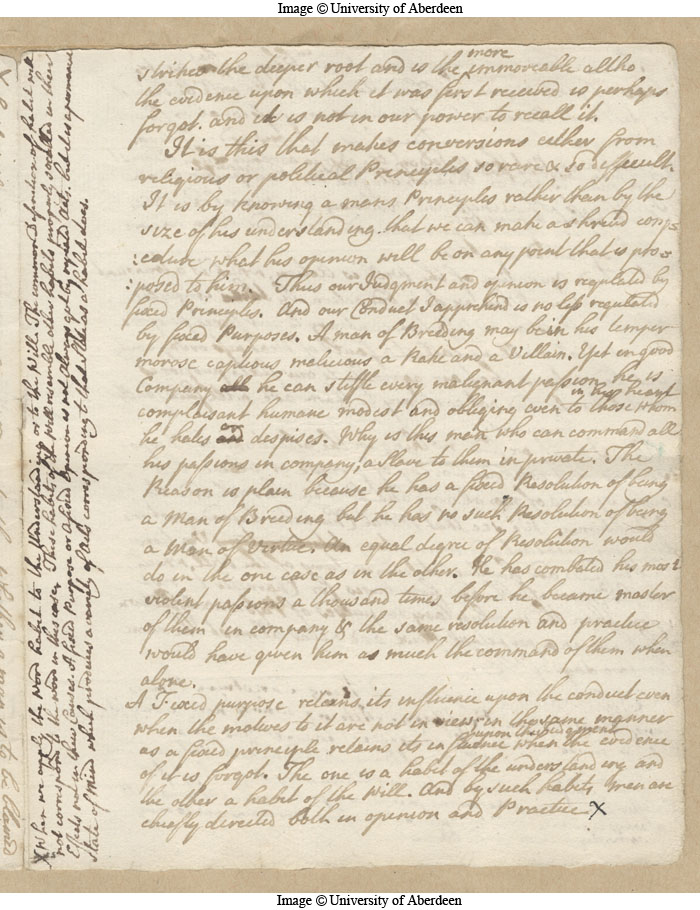 Image © University of Aberdeen
strikes the deeper root and is the more immoveable altho
the evidence upon which it was first received is perhaps
forgot. and it is not in our power to recall it.
It is this that makes conversions either from
religious or political Principles so rare & so difficult.
It is by knowing a mans Principles rather than by the
size of his understanding that we can make a shreud conj-
:ecture what his opinion will be on any point that is pro-
:posed to him. Thus our Judgment and opinion is regulated by
fixed Principles. And our Conduct I apprehend is no less regulated
by fixed Purposes. A man of Breeding may be in his temper
morose captious malicious a Rake and a Villain. Yet in good
Company he can stiffle every malignant passion he is
complaisant humane modest and obliging even to those whom in his heart
he hates and despises. Why is this man who can command all
his passions in company, a Slave to them in private. The
Reason is plain because he has a fixed Resolution of being
a Man of Breeding but he has no such Resolution of being
a Man of Virtue. An equal degree of Resolution would
do in the one case as in the other. He has combated his most
violent passions a thousand times before he became master
of them in company & the same resolution and practice
would have given him as much the command of them when
alone.
A Fixed purpose retains its influence upon the conduct even
when the motives to it are not in view, in the same manner
as a fixed principle retains its influence upon the Judgment when the evidence
of it is forgot. The one is a habit of the understanding and
the other a habit of the Will. And by such habits men are
chiefly directed both in opinion and Practice X
X When we apply the Word habit to the Understanding or to the Will. The common Definition of habit will
not correspond to the word in this case. These habits of the Will resemble other habits properly so called in their
Effects not in their Causes. A fixed Purpose or a fixed Opinion is not always got by repeated Acts. habit is a permanent
State of Mind which produces a variety of Acts corresponding to that State as a habit does.
Image © University of Aberdeen